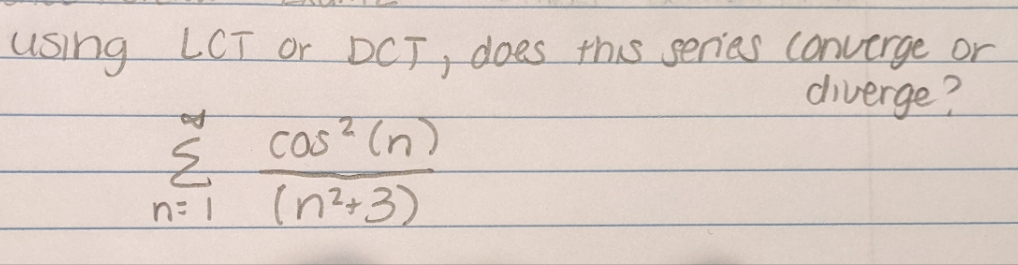 using LCT or DCT, does this series converge or
diverge?
∞
Σ cos²(n)
n=1 (n²+3)